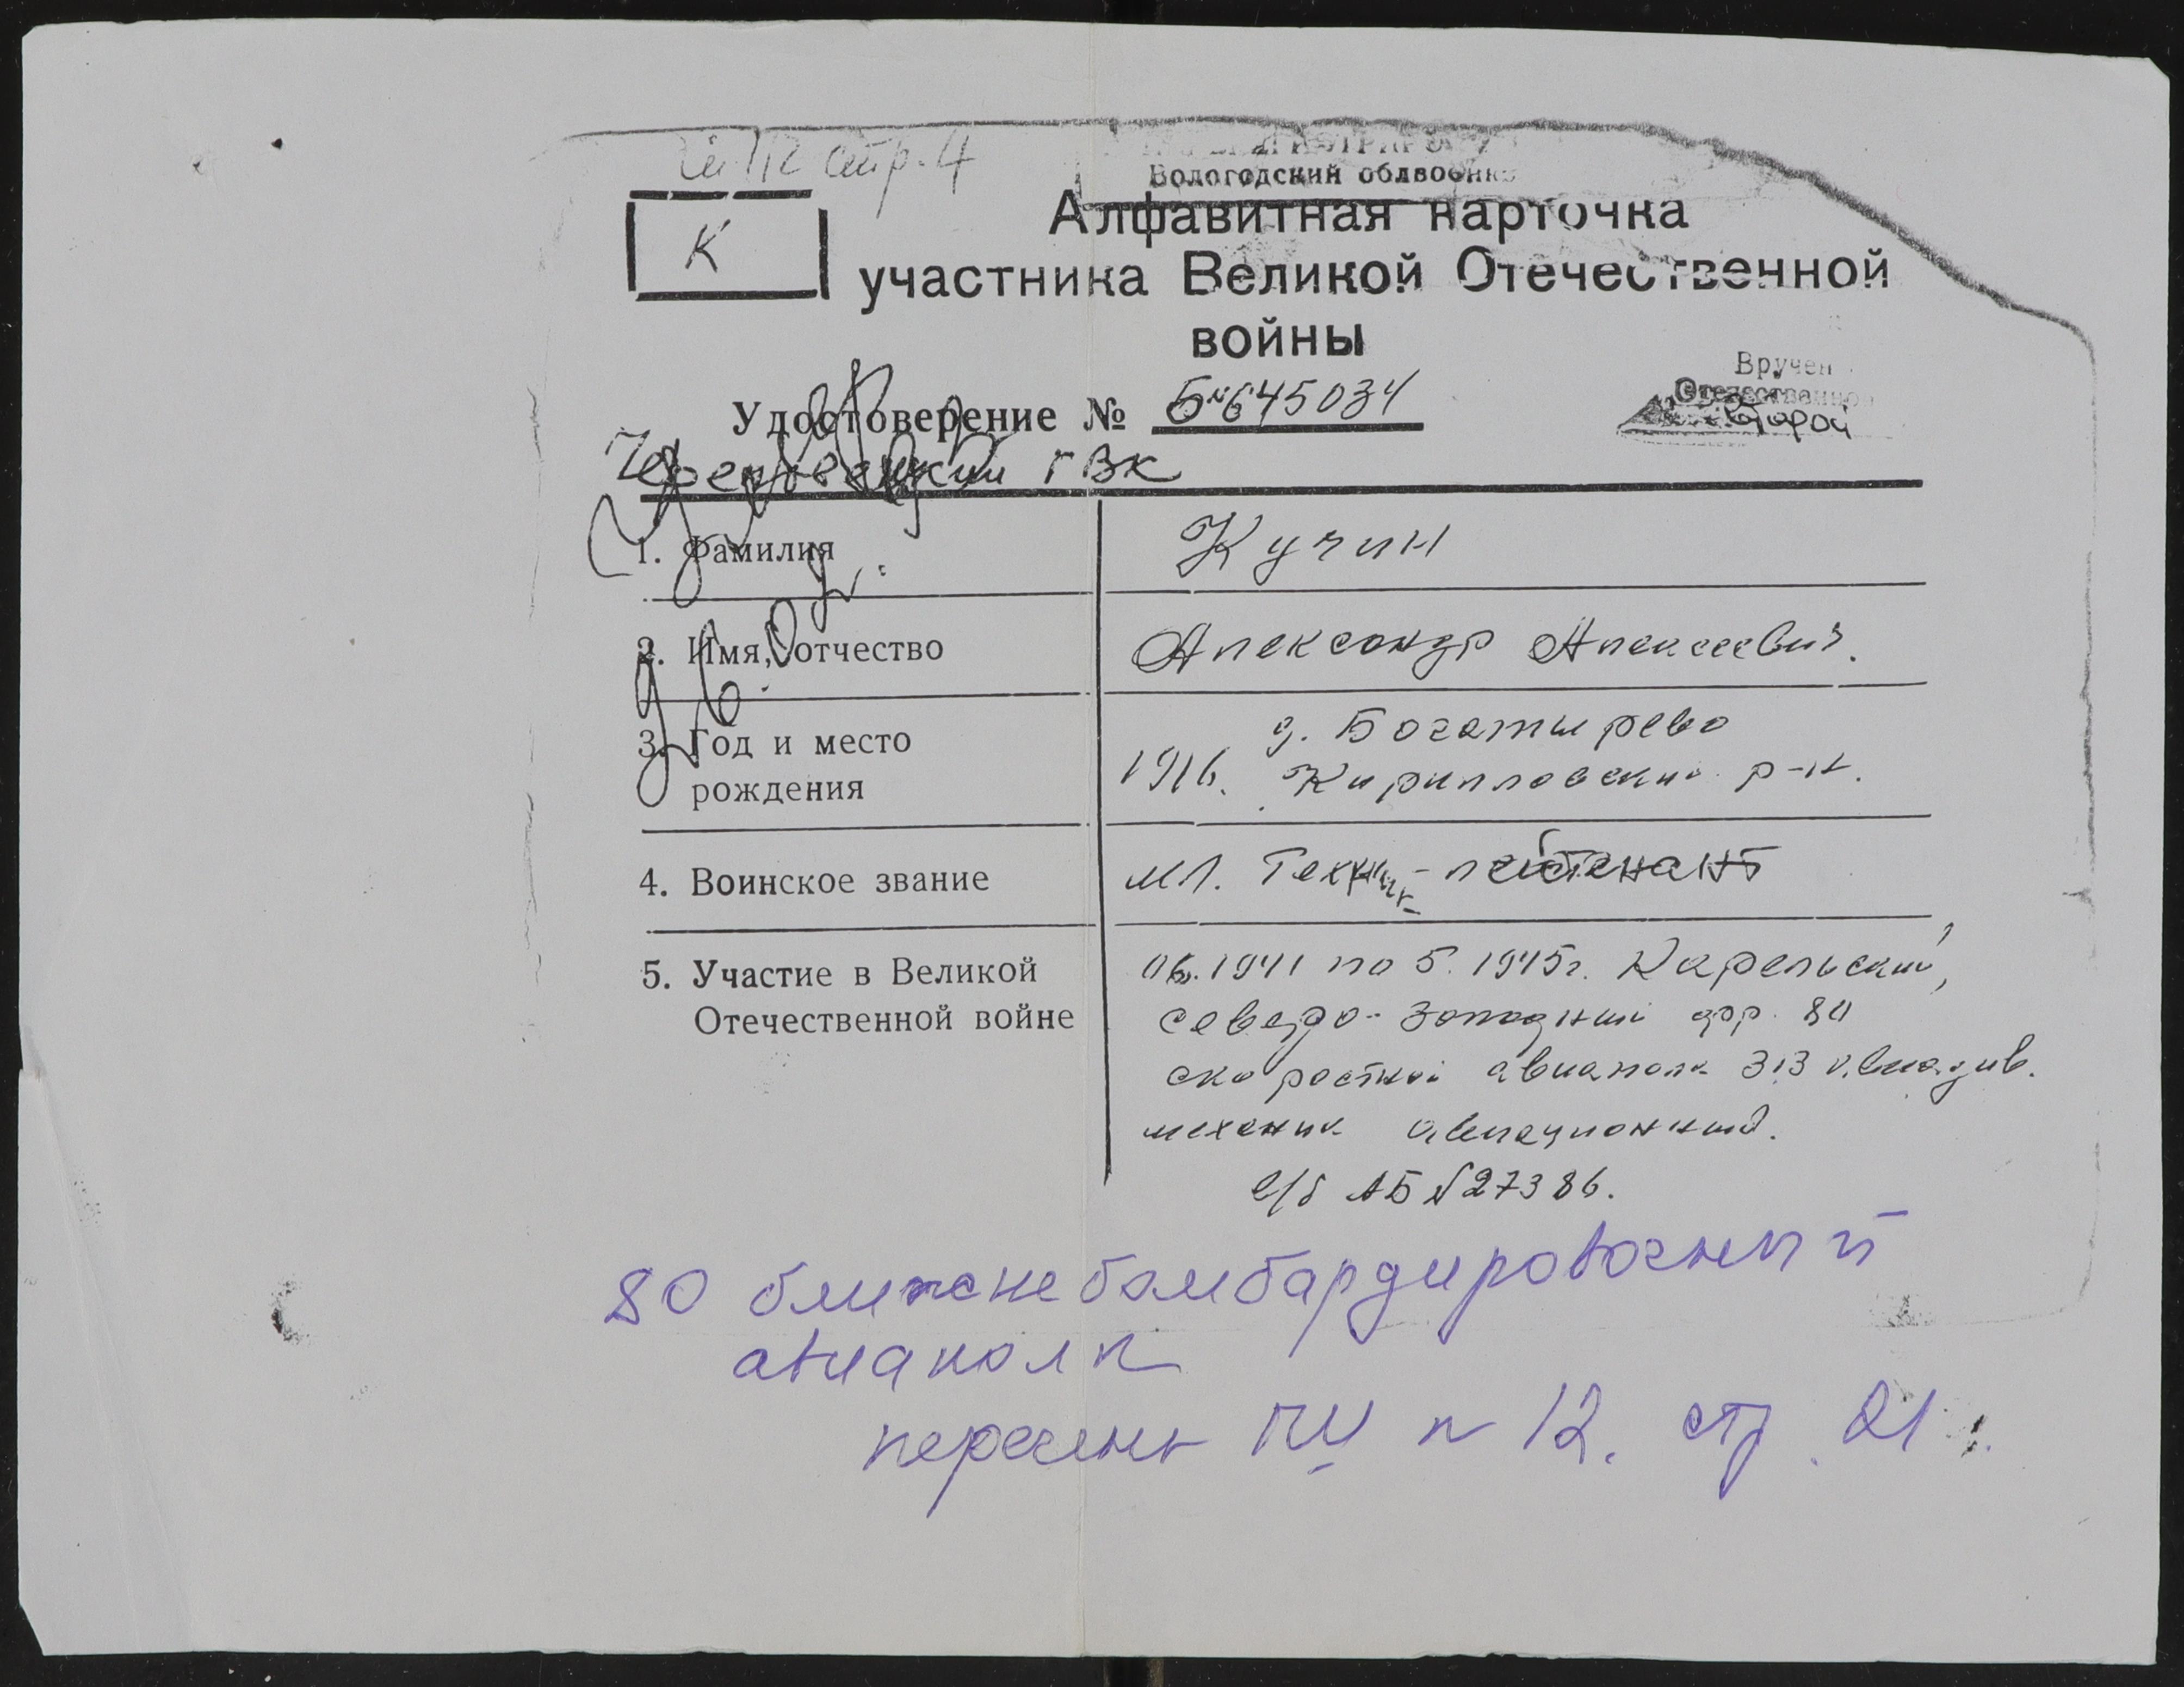 стр. 4
Вологодский облвоенк
К
Алфавитная карточка
участника Великой Отечественной
войны
Вручен
Отечественной
второй
Удостоверение № Б№645034
Череповецкий ГВК
1. Фамилия
Кучин
2. Имя, отчество
Александр Алексеевич.
3. Год и место
рождения
д. Богатырево
1916. Кирилловский р-н.
4. Воинское звание
мл. Техник-лейтенант
5. Участие в Великой
Отечественной войне
06.1941 по 5.1945г. Карельский,
северо-западный фр. 80
скоростной авиаполк 313 авиадив.
механик авиационный.
в/б АБ №27386.
80 ближнебомбардировочный
авиаполк
перечень ПУ № 12. стр. 21